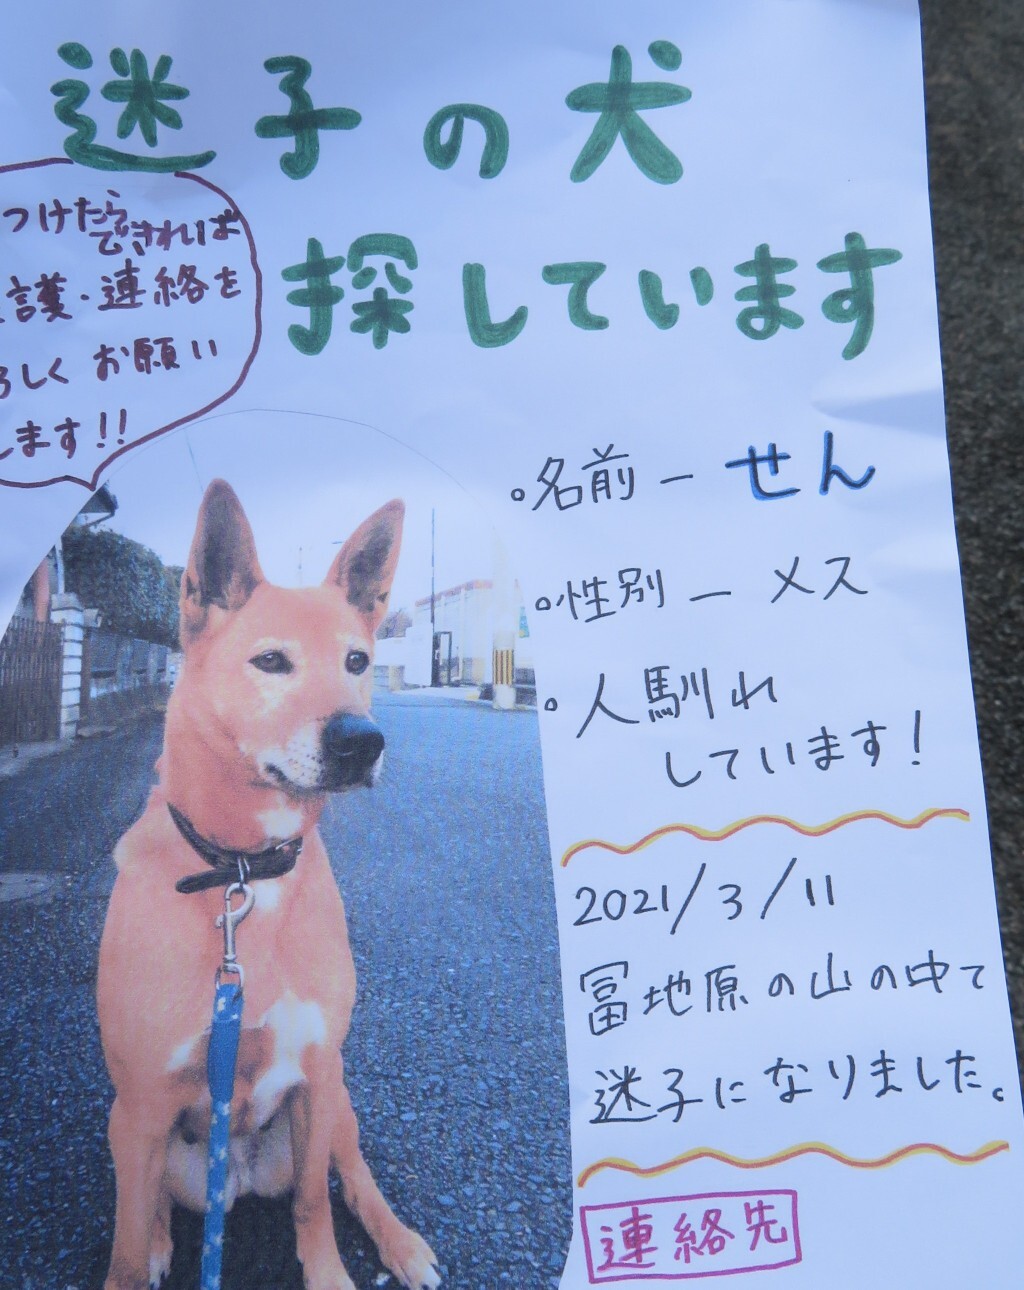 迷子の犬
探しています
つけたら
できれば
護・連絡を
しく お願い
します!!
。名前 ー せん
。性別 ー メス
。人馴れ
しています!
2021/3/11
冨地原の山の中で
迷子になりました。
連絡先